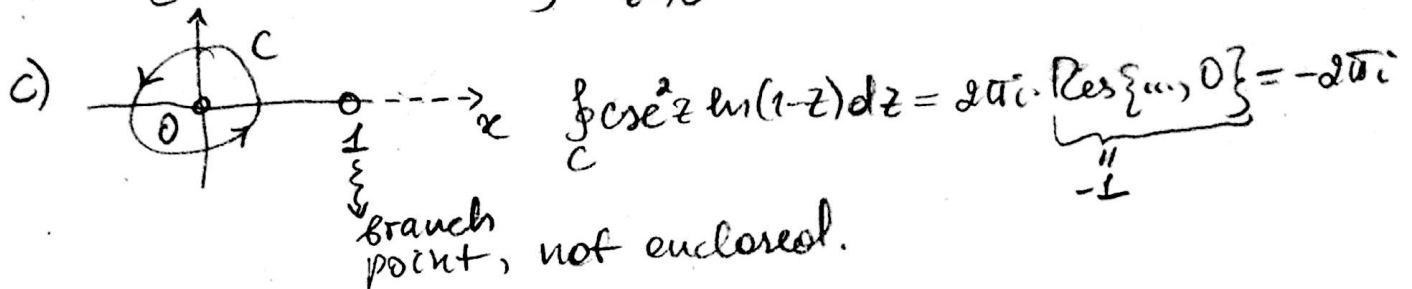 c) C 0 1 x ∮_C csc²z ln(1-z)dz = 2πi · Res{..., 0} = -2πi
-1
branch
point, not enclosed.